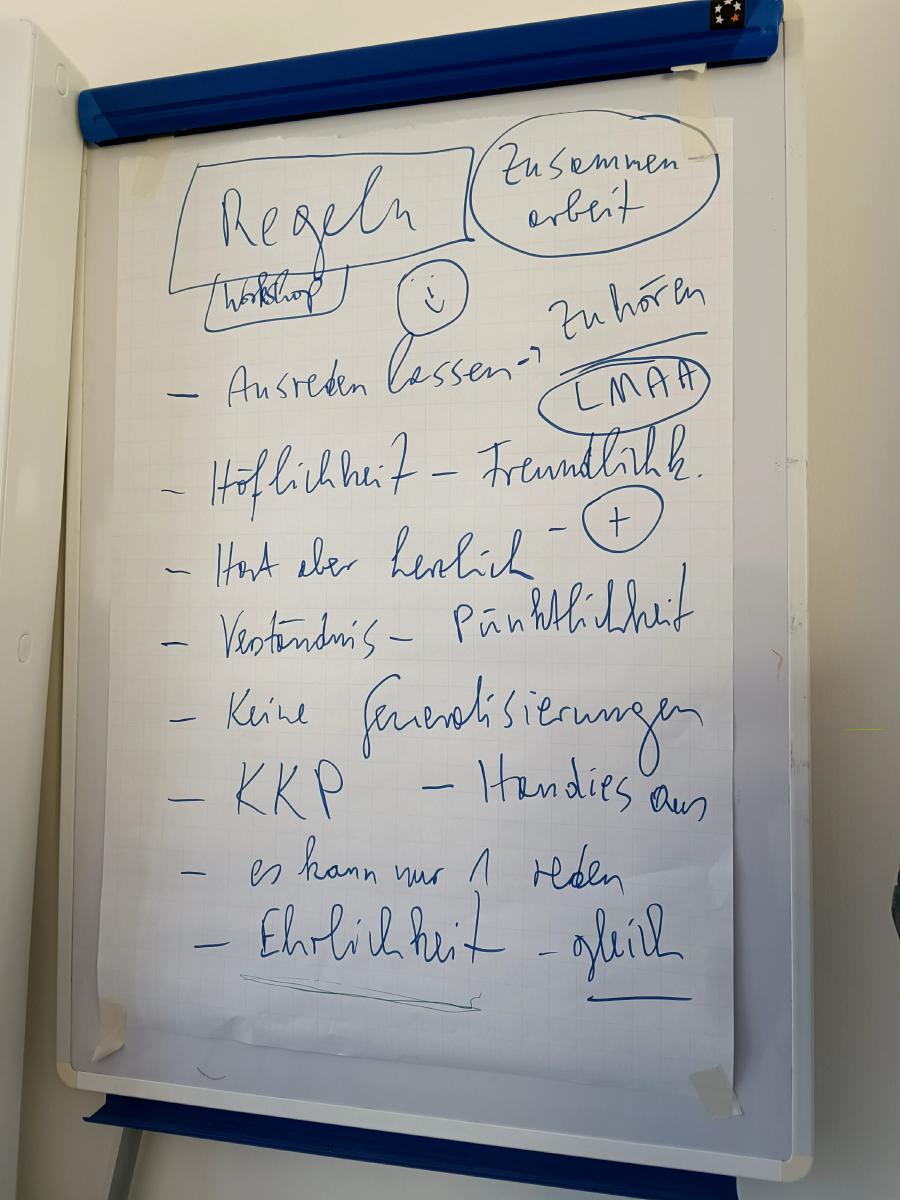 Regeln
Zusammen
arbeit
Workshop
- Ausreden lassen -> Zuhören
LMAA
- Höflichkeit - Freundlichk.
- Hart aber herzlich - +
- Verständnis - Pünktlichkeit
- Keine Generalisierungen
- KKP - Handies aus
- es kann nur 1 reden
- Ehrlichkeit - gleich